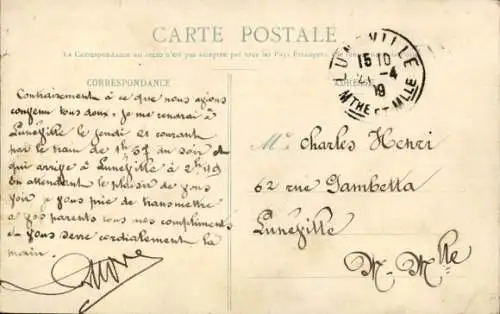 CARTE POSTALE
La Correspondance au recto n'est pas acceptée par tous les Pays Étrangers
CORRESPONDANCE
LUNEVILLE
15 10
-4
09
MTHE ET MLLE
Contrairement à ce que nous avions
convenu tous deux. Je me rendrai à
Lunéville le jeudi et courant
par le train de 1h 57 du soir et
qui arrive à Lunéville à 2h 19
En attendant le plaisir de vous
voir je vous prie de transmettre
à vos parents tous mes compliments
et vous serre cordialement la
main.
Mr Charles Henri
62 rue Gambetta
Lunéville
M.-Mlle